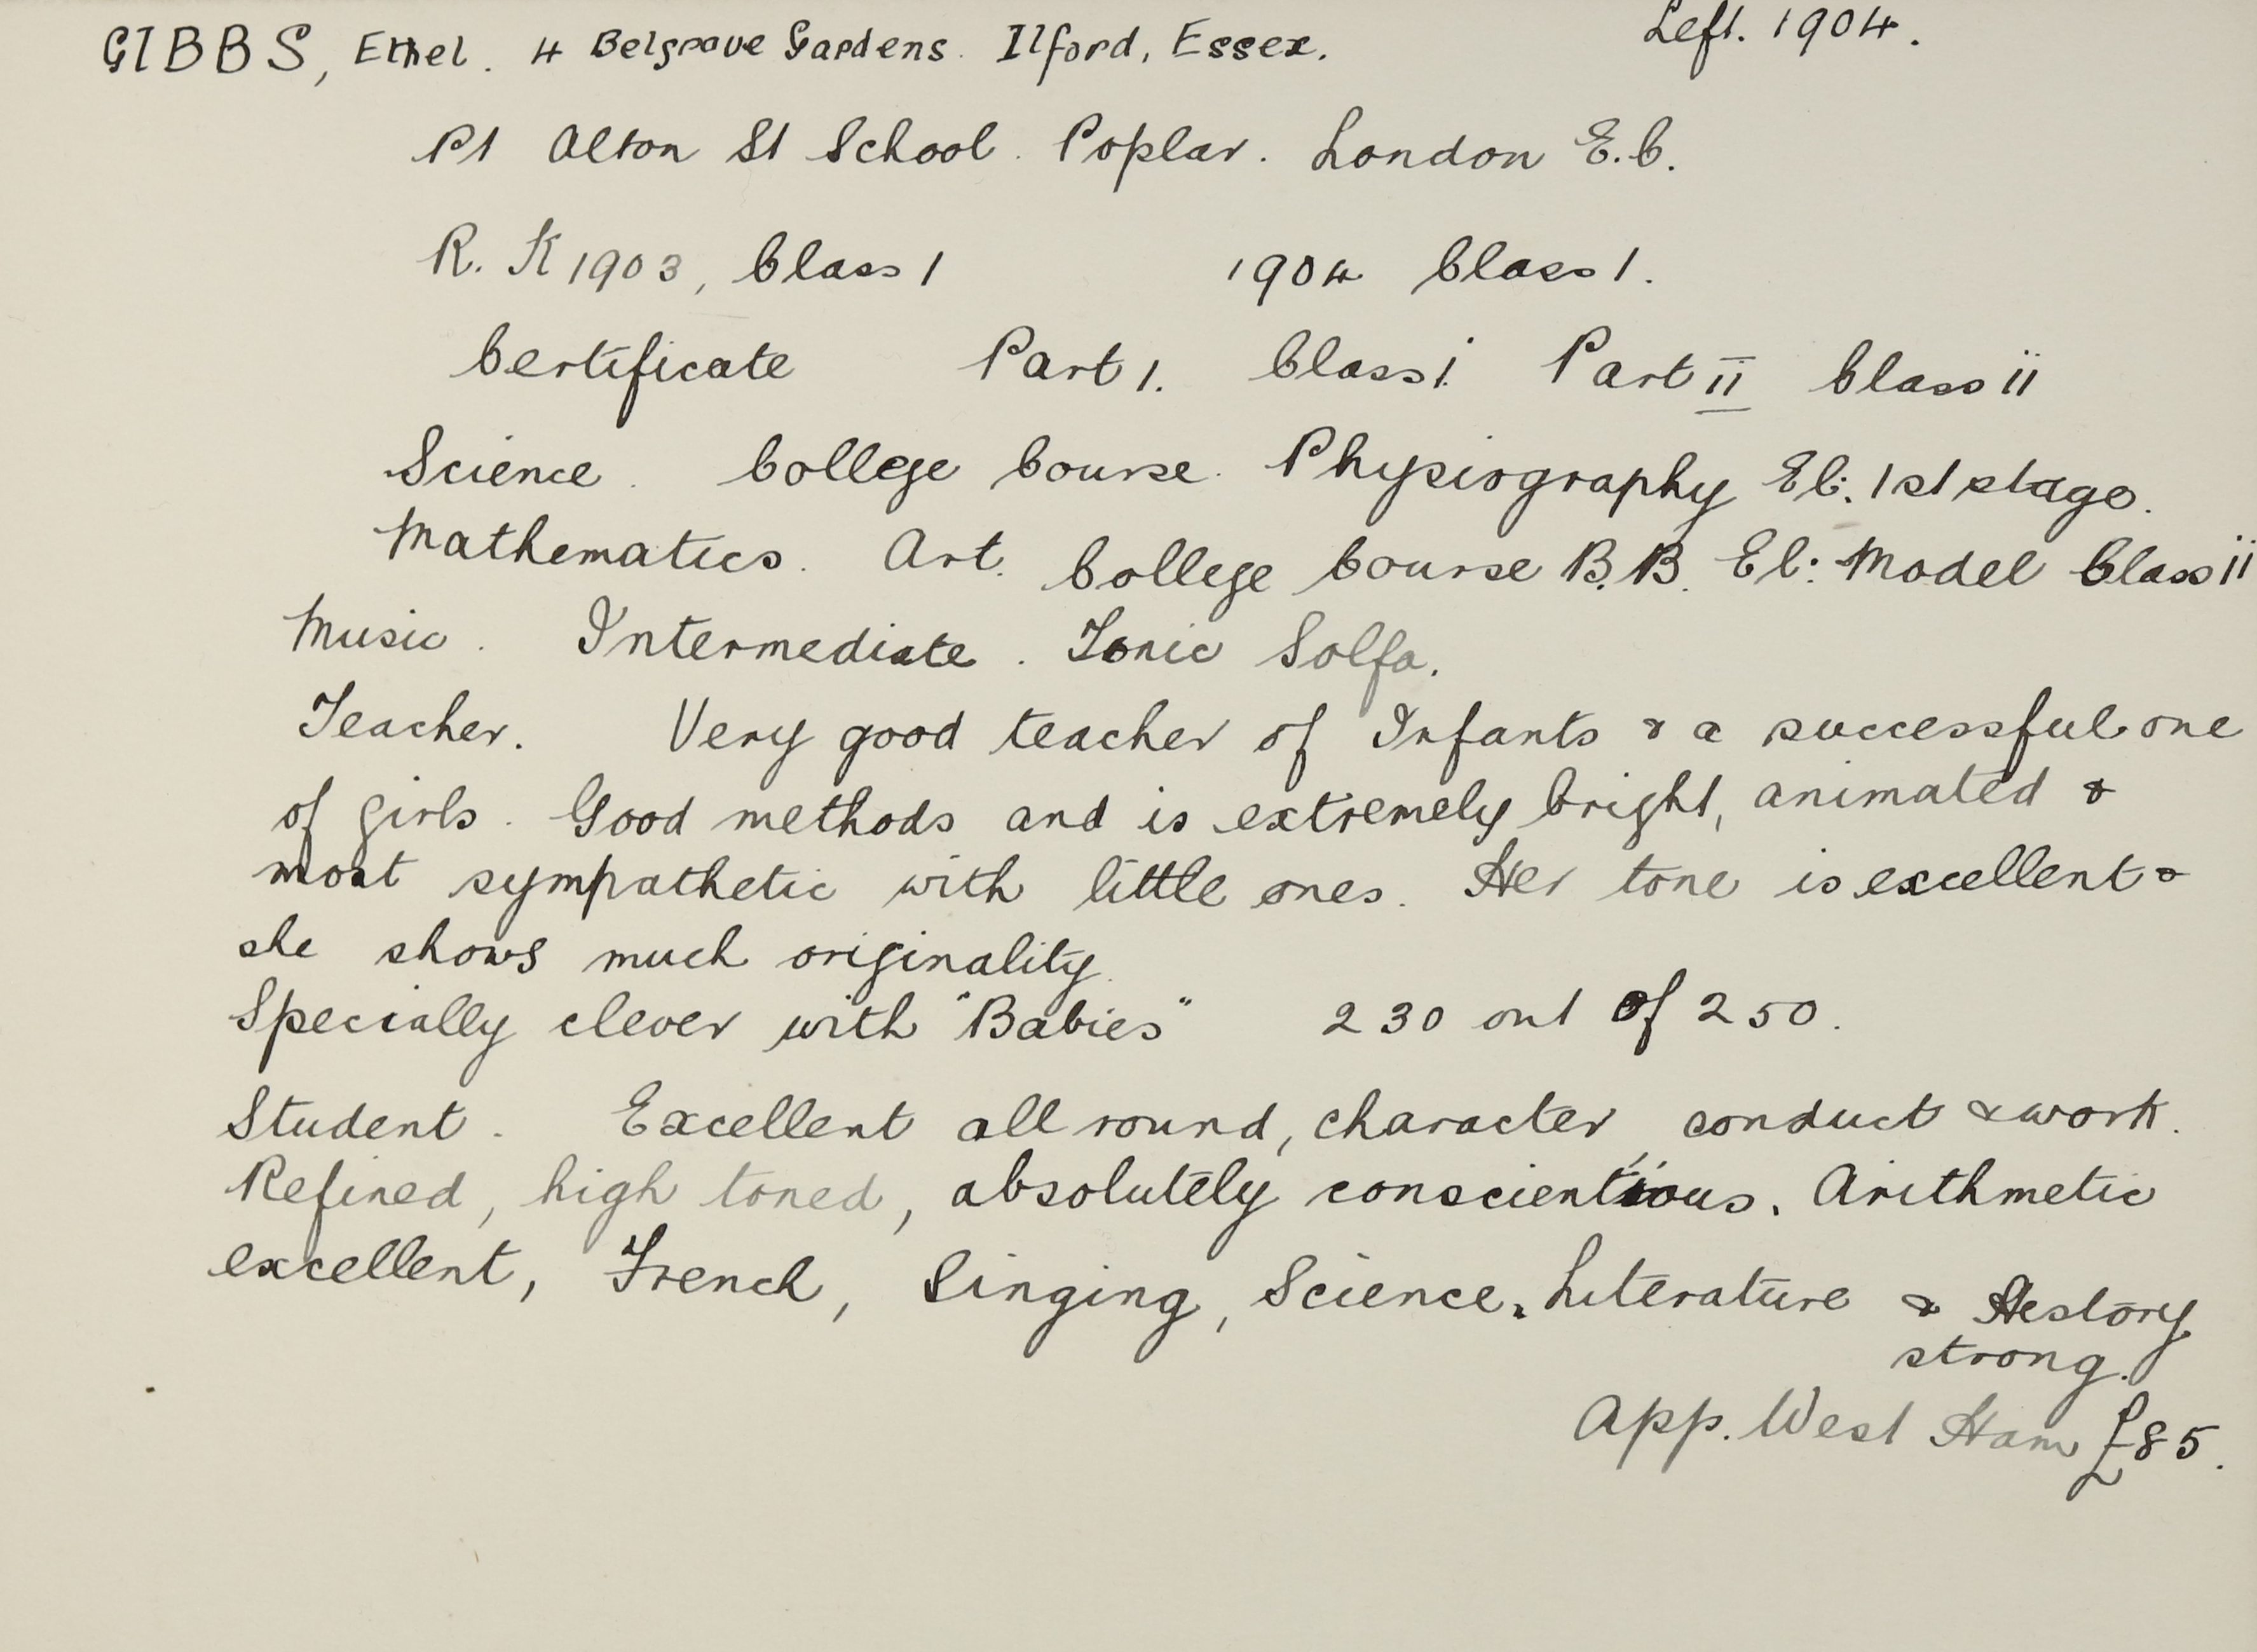 GIBBS, Ethel. 4 Belgrave Gardens. Ilford, Essex. Left. 1904.
Pt Alton St School. Poplar. London E.C.
R. K 1903, Class 1 1904 Class 1.
Certificate Part 1. Class i. Part II Class ii
Science. College Course. Physiography El: 1st stage.
Mathematics. Art. College Course B.B. El: Model Class ii
Music. Intermediate. Tonic Solfa.
Teacher. Very good teacher of Infants & a successful one
of girls. Good methods and is extremely bright, animated &
most sympathetic with little ones. Her tone is excellent &
she shows much originality.
Specially clever with "Babies" 230 out of 250.
Student. Excellent all round, character, conduct & work.
Refined, high toned, absolutely conscientious. Arithmetic
excellent, French, Singing, Science, Literature & History
strong.
App. West Ham £85.